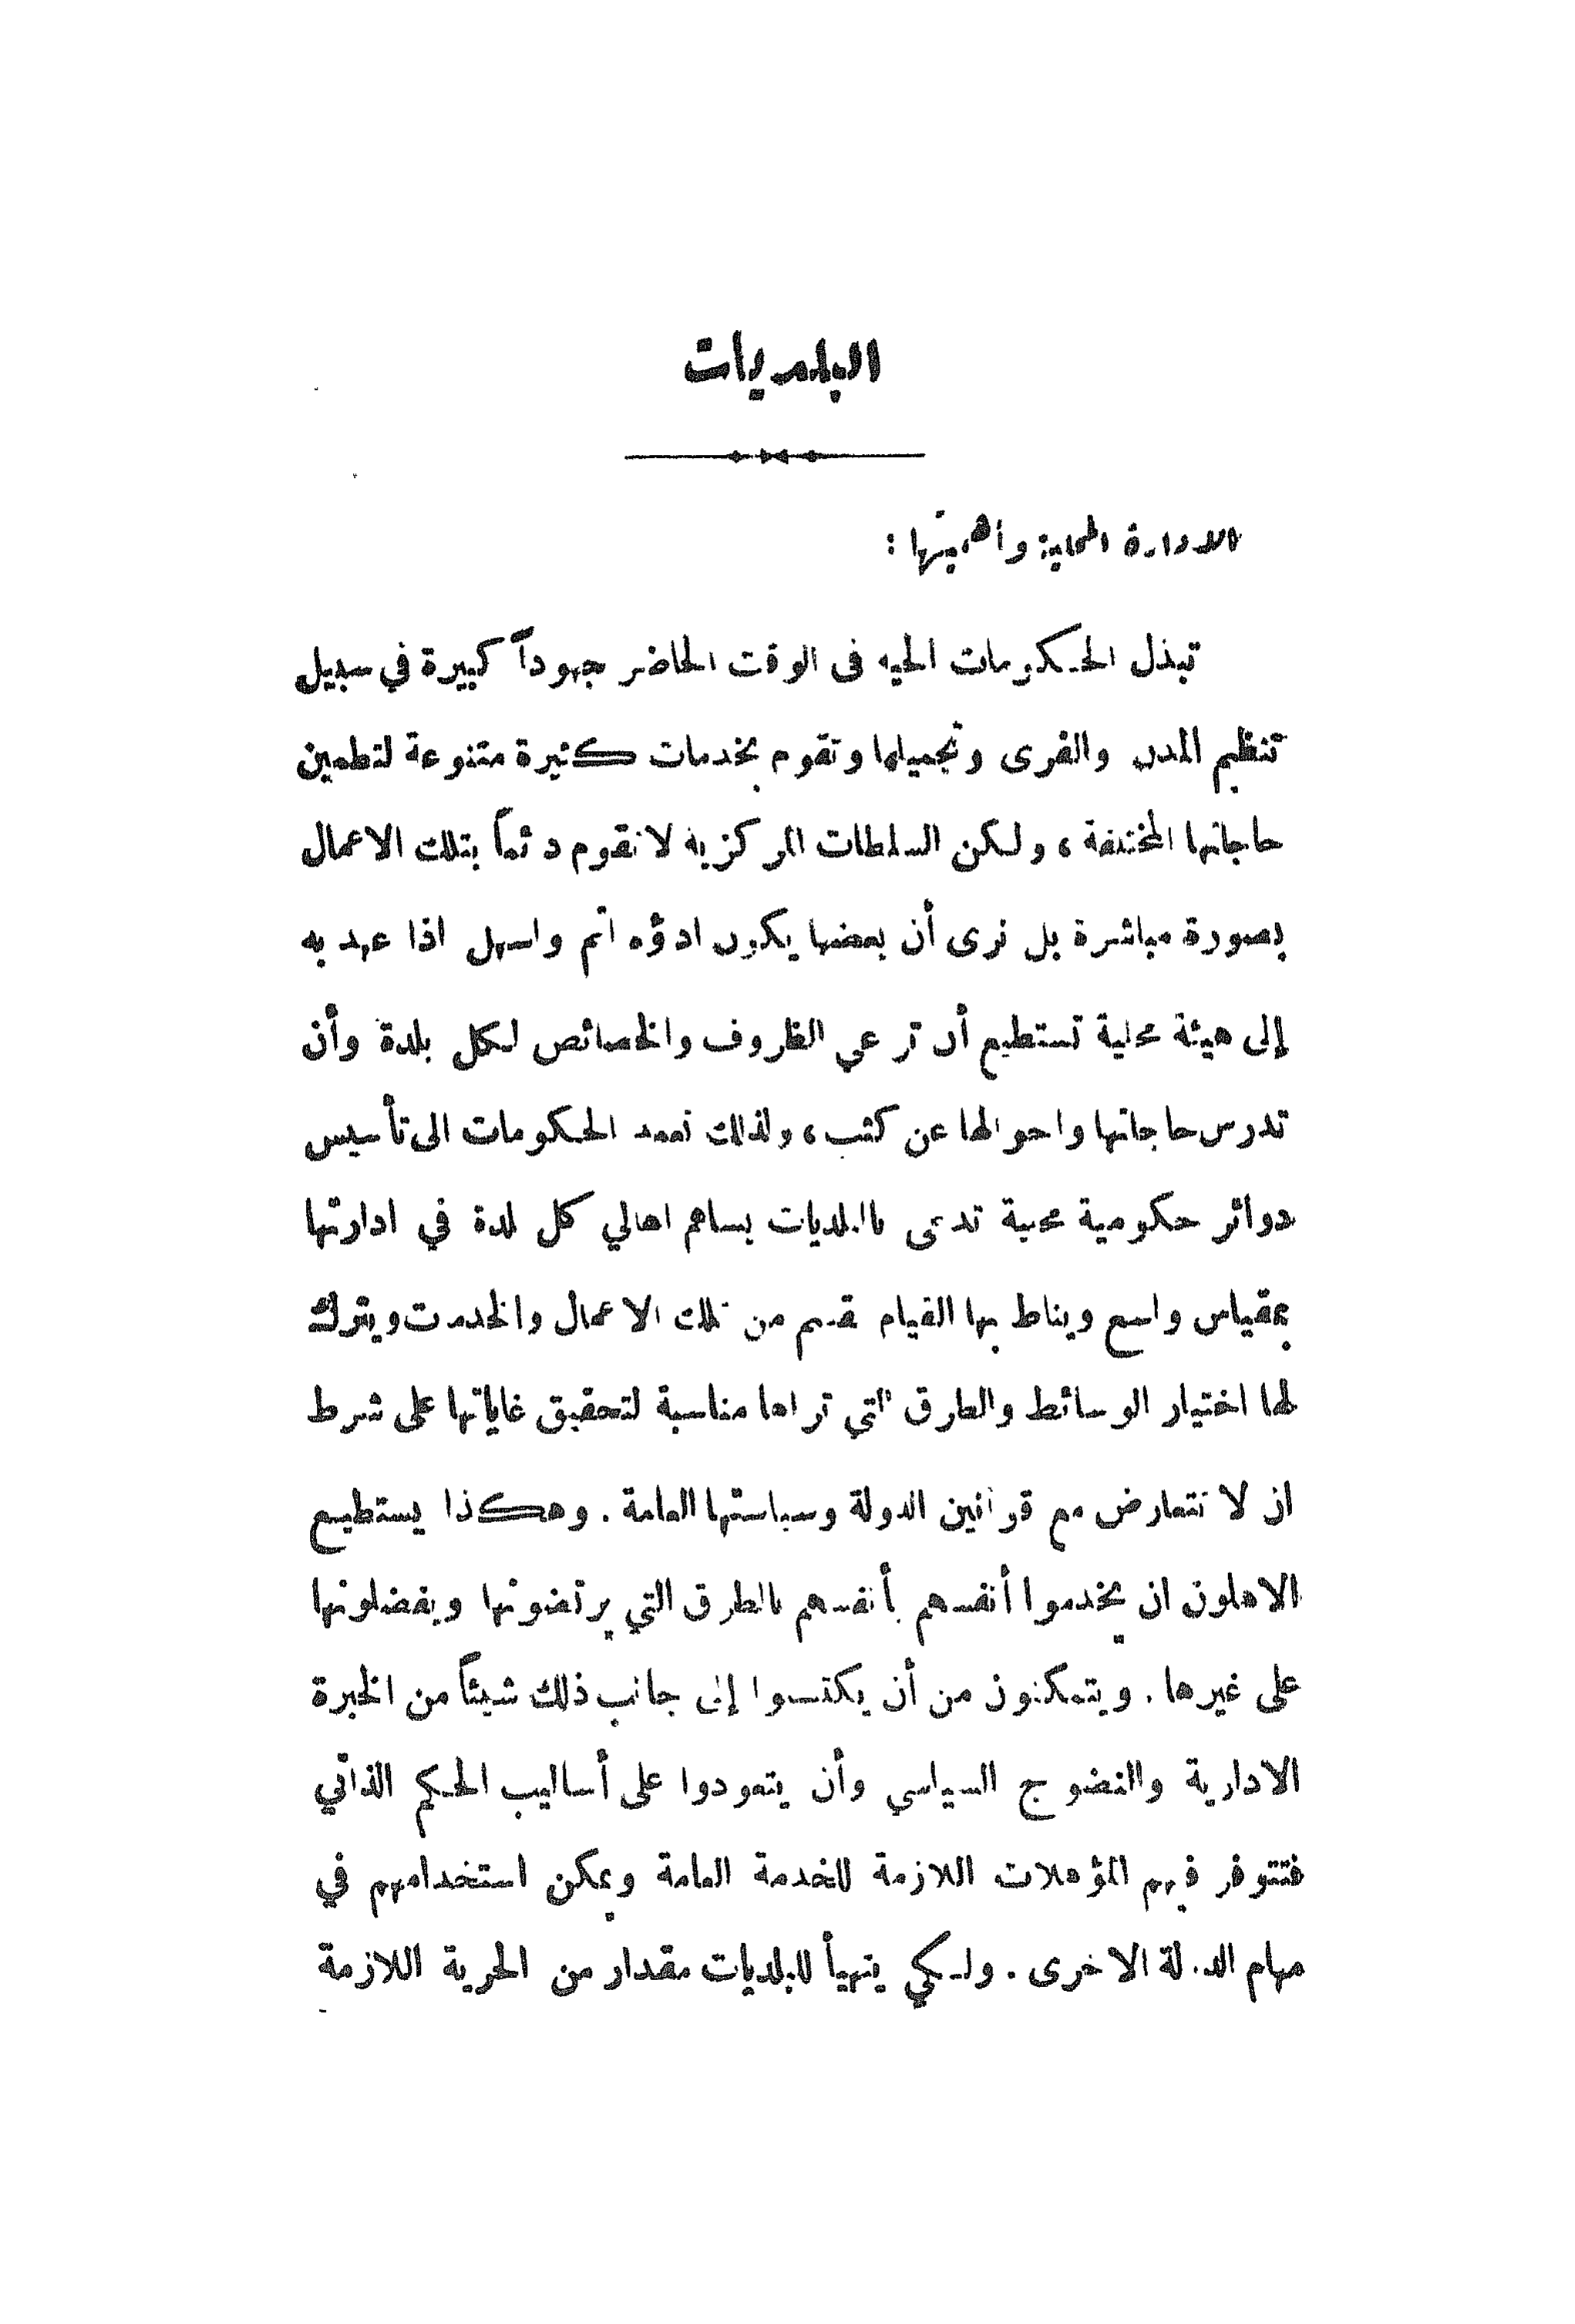 البلديات
الادارة المحلية وأهميتها :
تبذل الحكومات الحيه فى الوقت الحاضر جهوداً كبيرة في سبيل
تنظيم المدن والقرى وتجميلها وتقوم بخدمات كثيرة متنوعة لتطمين
حاجاتها المختلفة ، ولكن السلطات المركزية لا تقوم دئماً بتلك الاعمال
بصورة مباشرة بل نرى أن بعضها يكون ادؤه اتم واسهل اذا عهد به
إلى هيئة محلية تستطيع أن تراعي الظروف والخصائص لكل بلدة وأن
تدرس حاجاتها واحوالها عن كثب ، ولذلك تعمد الحكومات الى تأسيس
دوائر حكومية محلية تدعى بالبلديات يساهم اهالي كل بلدة في ادارتها
بمقياس واسع ويناط بها القيام بقسم من تلك الاعمال والخدمات ويترك
لها اختيار الوسائط والطرق التي تراها مناسبة لتحقيق غاياتها على شرط
ان لا تتعارض مع قوانين الدولة وسياستها العامة . وهكذا يستطيع
الاهلون ان يخدموا أنفسهم بأنفسهم بالطرق التي يرتضونها ويفضلونها
على غيرها . ويتمكنون من أن يكتسبوا إلى جانب ذلك شيئاً من الخبرة
الادارية والنضوج السياسي وأن يتعودوا على أساليب الحكم الذاتي
فتتوفر فيهم المؤهلات اللازمة للخدمة العامة ويمكن استخدامهم في
مهام الدولة الاخرى . ولكي يتهيأ للبلديات مقدار من الحرية اللازمة